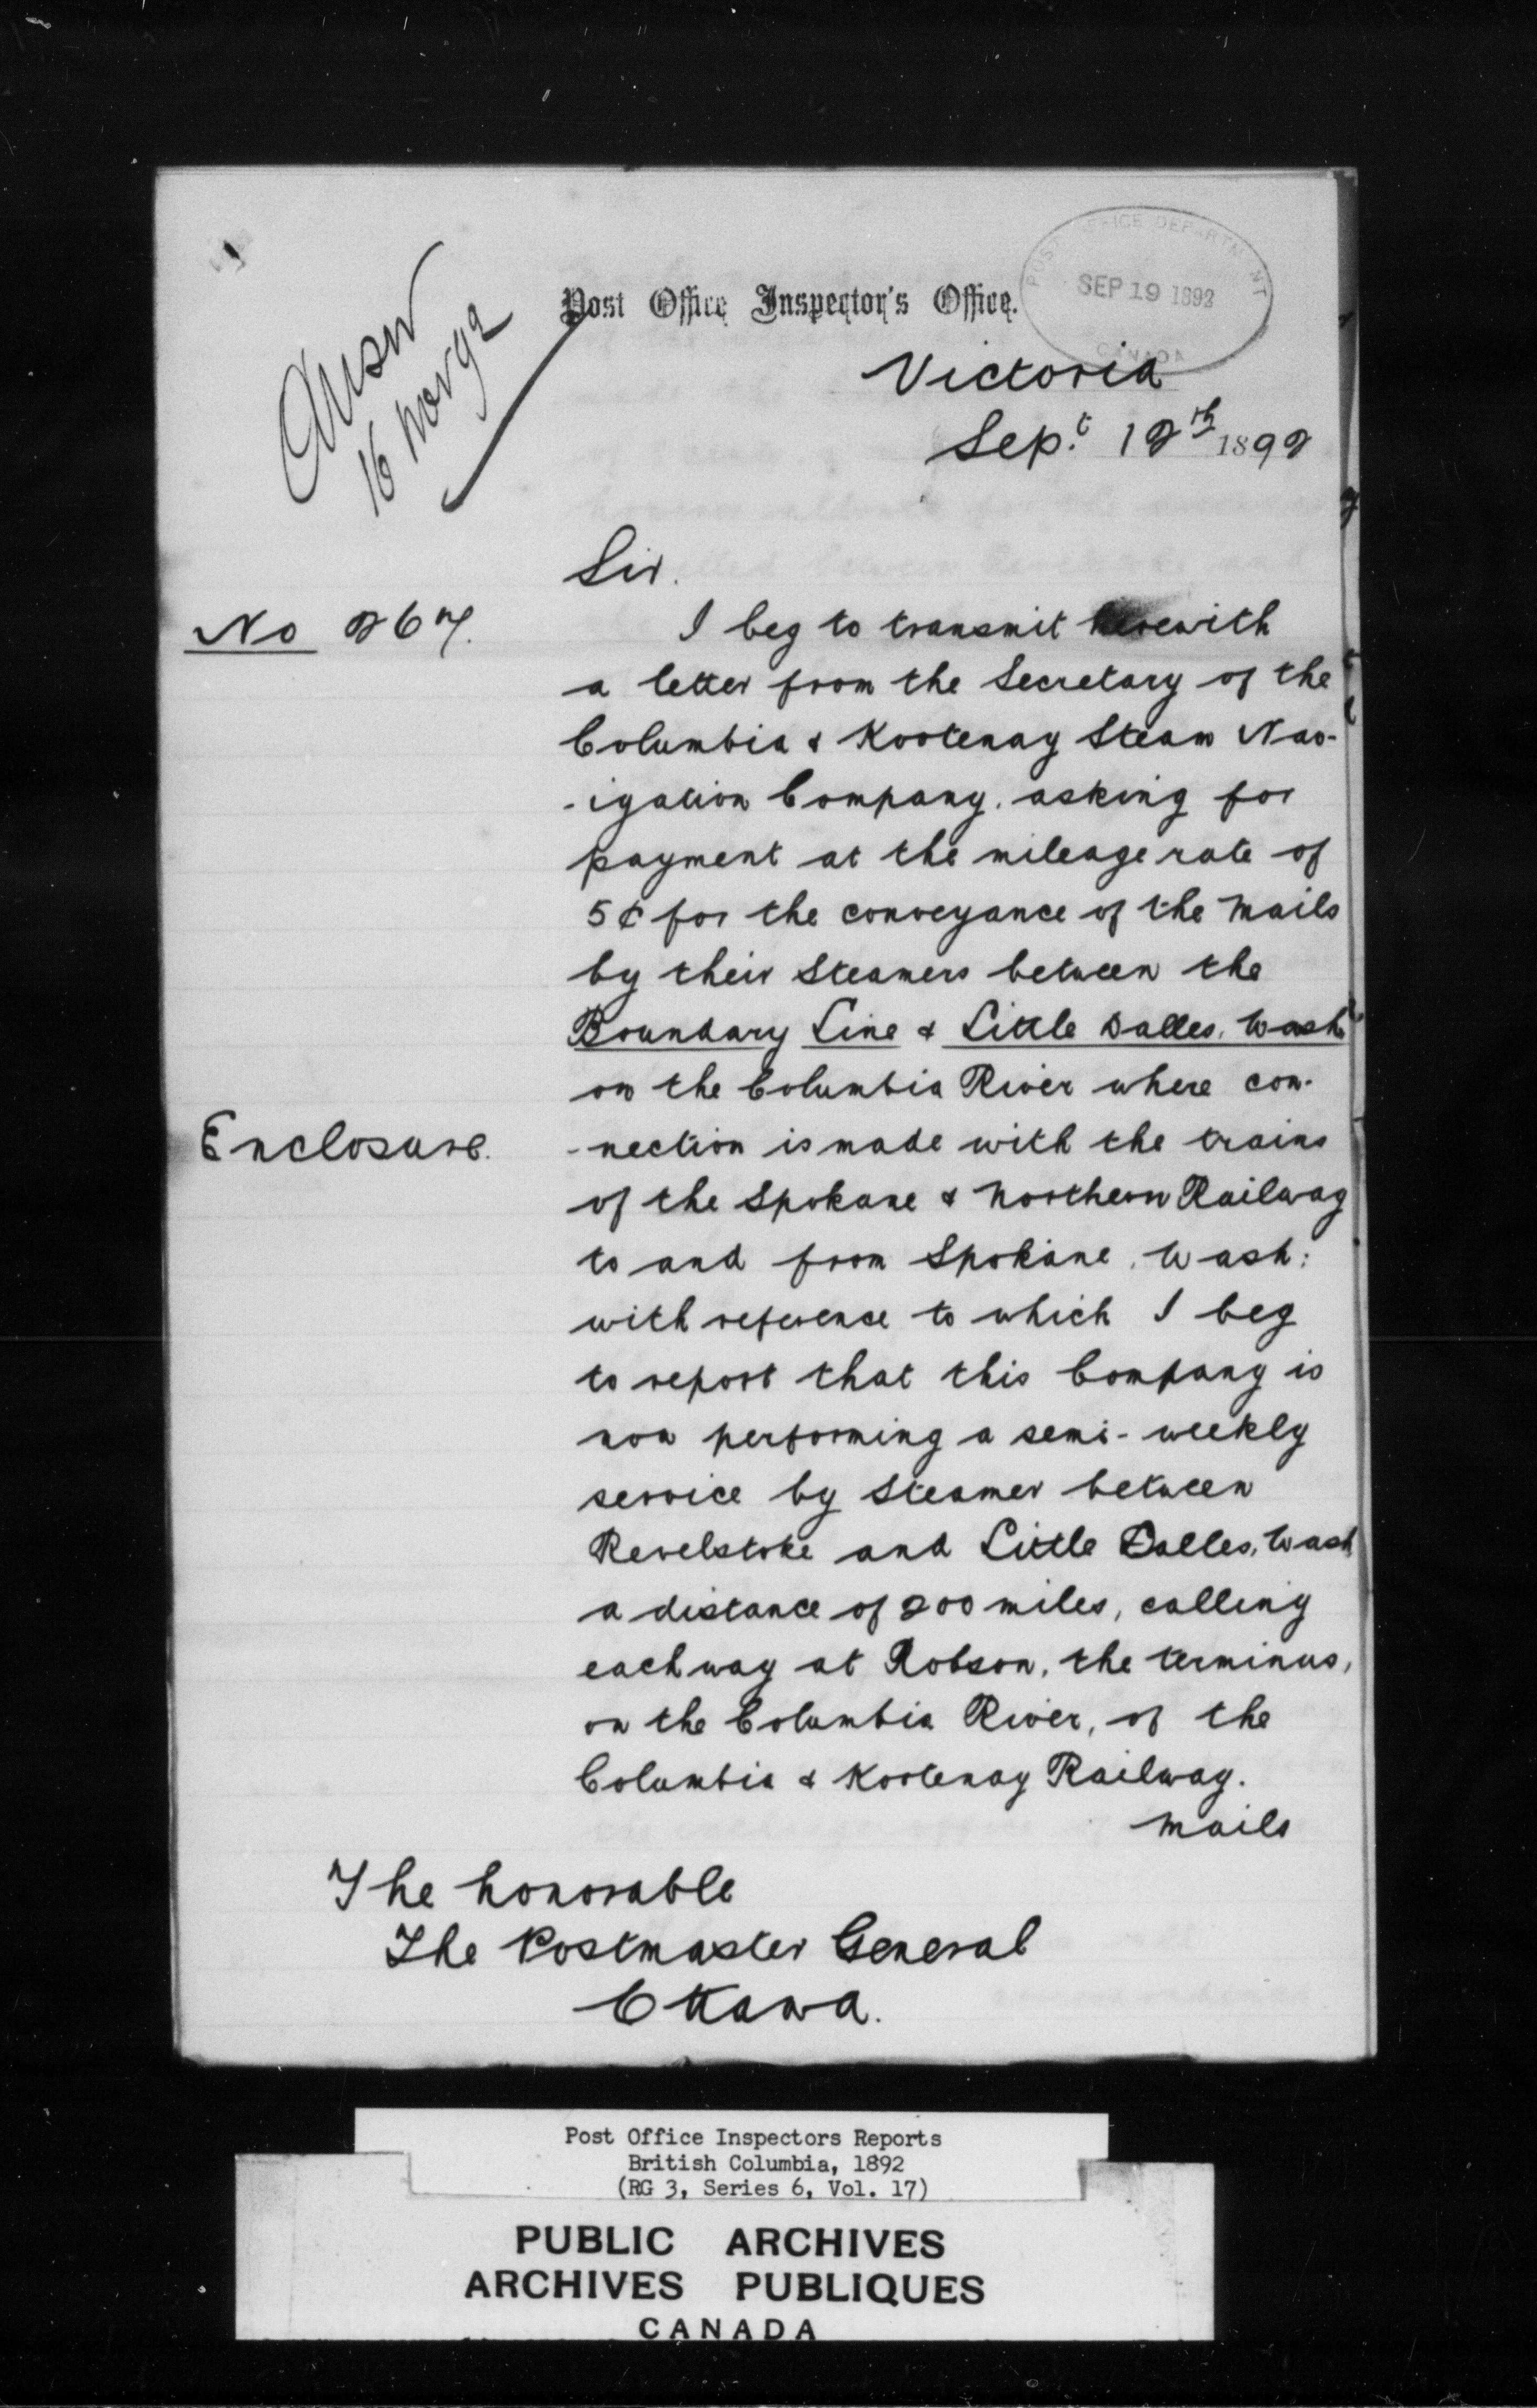 Post Office Inspector's Office.
POST OFFICE DEPARTMENT
SEP 19 1892
CANADA
Victoria
Sep.t 12th 1892
Answ
16 Nov 92
Sir.
No 267.
I beg to transmit herewith
a letter from the Secretary of the
Columbia & Kootenay Steam Nav-
-igation Company, asking for
payment at the mileage rate of
5¢ for the conveyance of the mails
by their Steamers between the
Boundary Line & Little Dalles, Wash
on the Columbia River where con-
Enclosure.
-nection is made with the trains
of the Spokane & Northern Railway
to and from Spokane, Wash:
with reference to which I beg
to report that this Company is
now performing a semi-weekly
service by Steamer between
Revelstoke and Little Dalles, Wash
a distance of 200 miles, calling
each way at Robson, the terminus,
on the Columbia River, of the
Columbia & Kootenay Railway.
Mails
The honorable
The Postmaster General
Ottawa.
Post Office Inspectors Reports
British Columbia, 1892
(RG 3, Series 6, Vol. 17)
PUBLIC ARCHIVES
ARCHIVES PUBLIQUES
CANADA